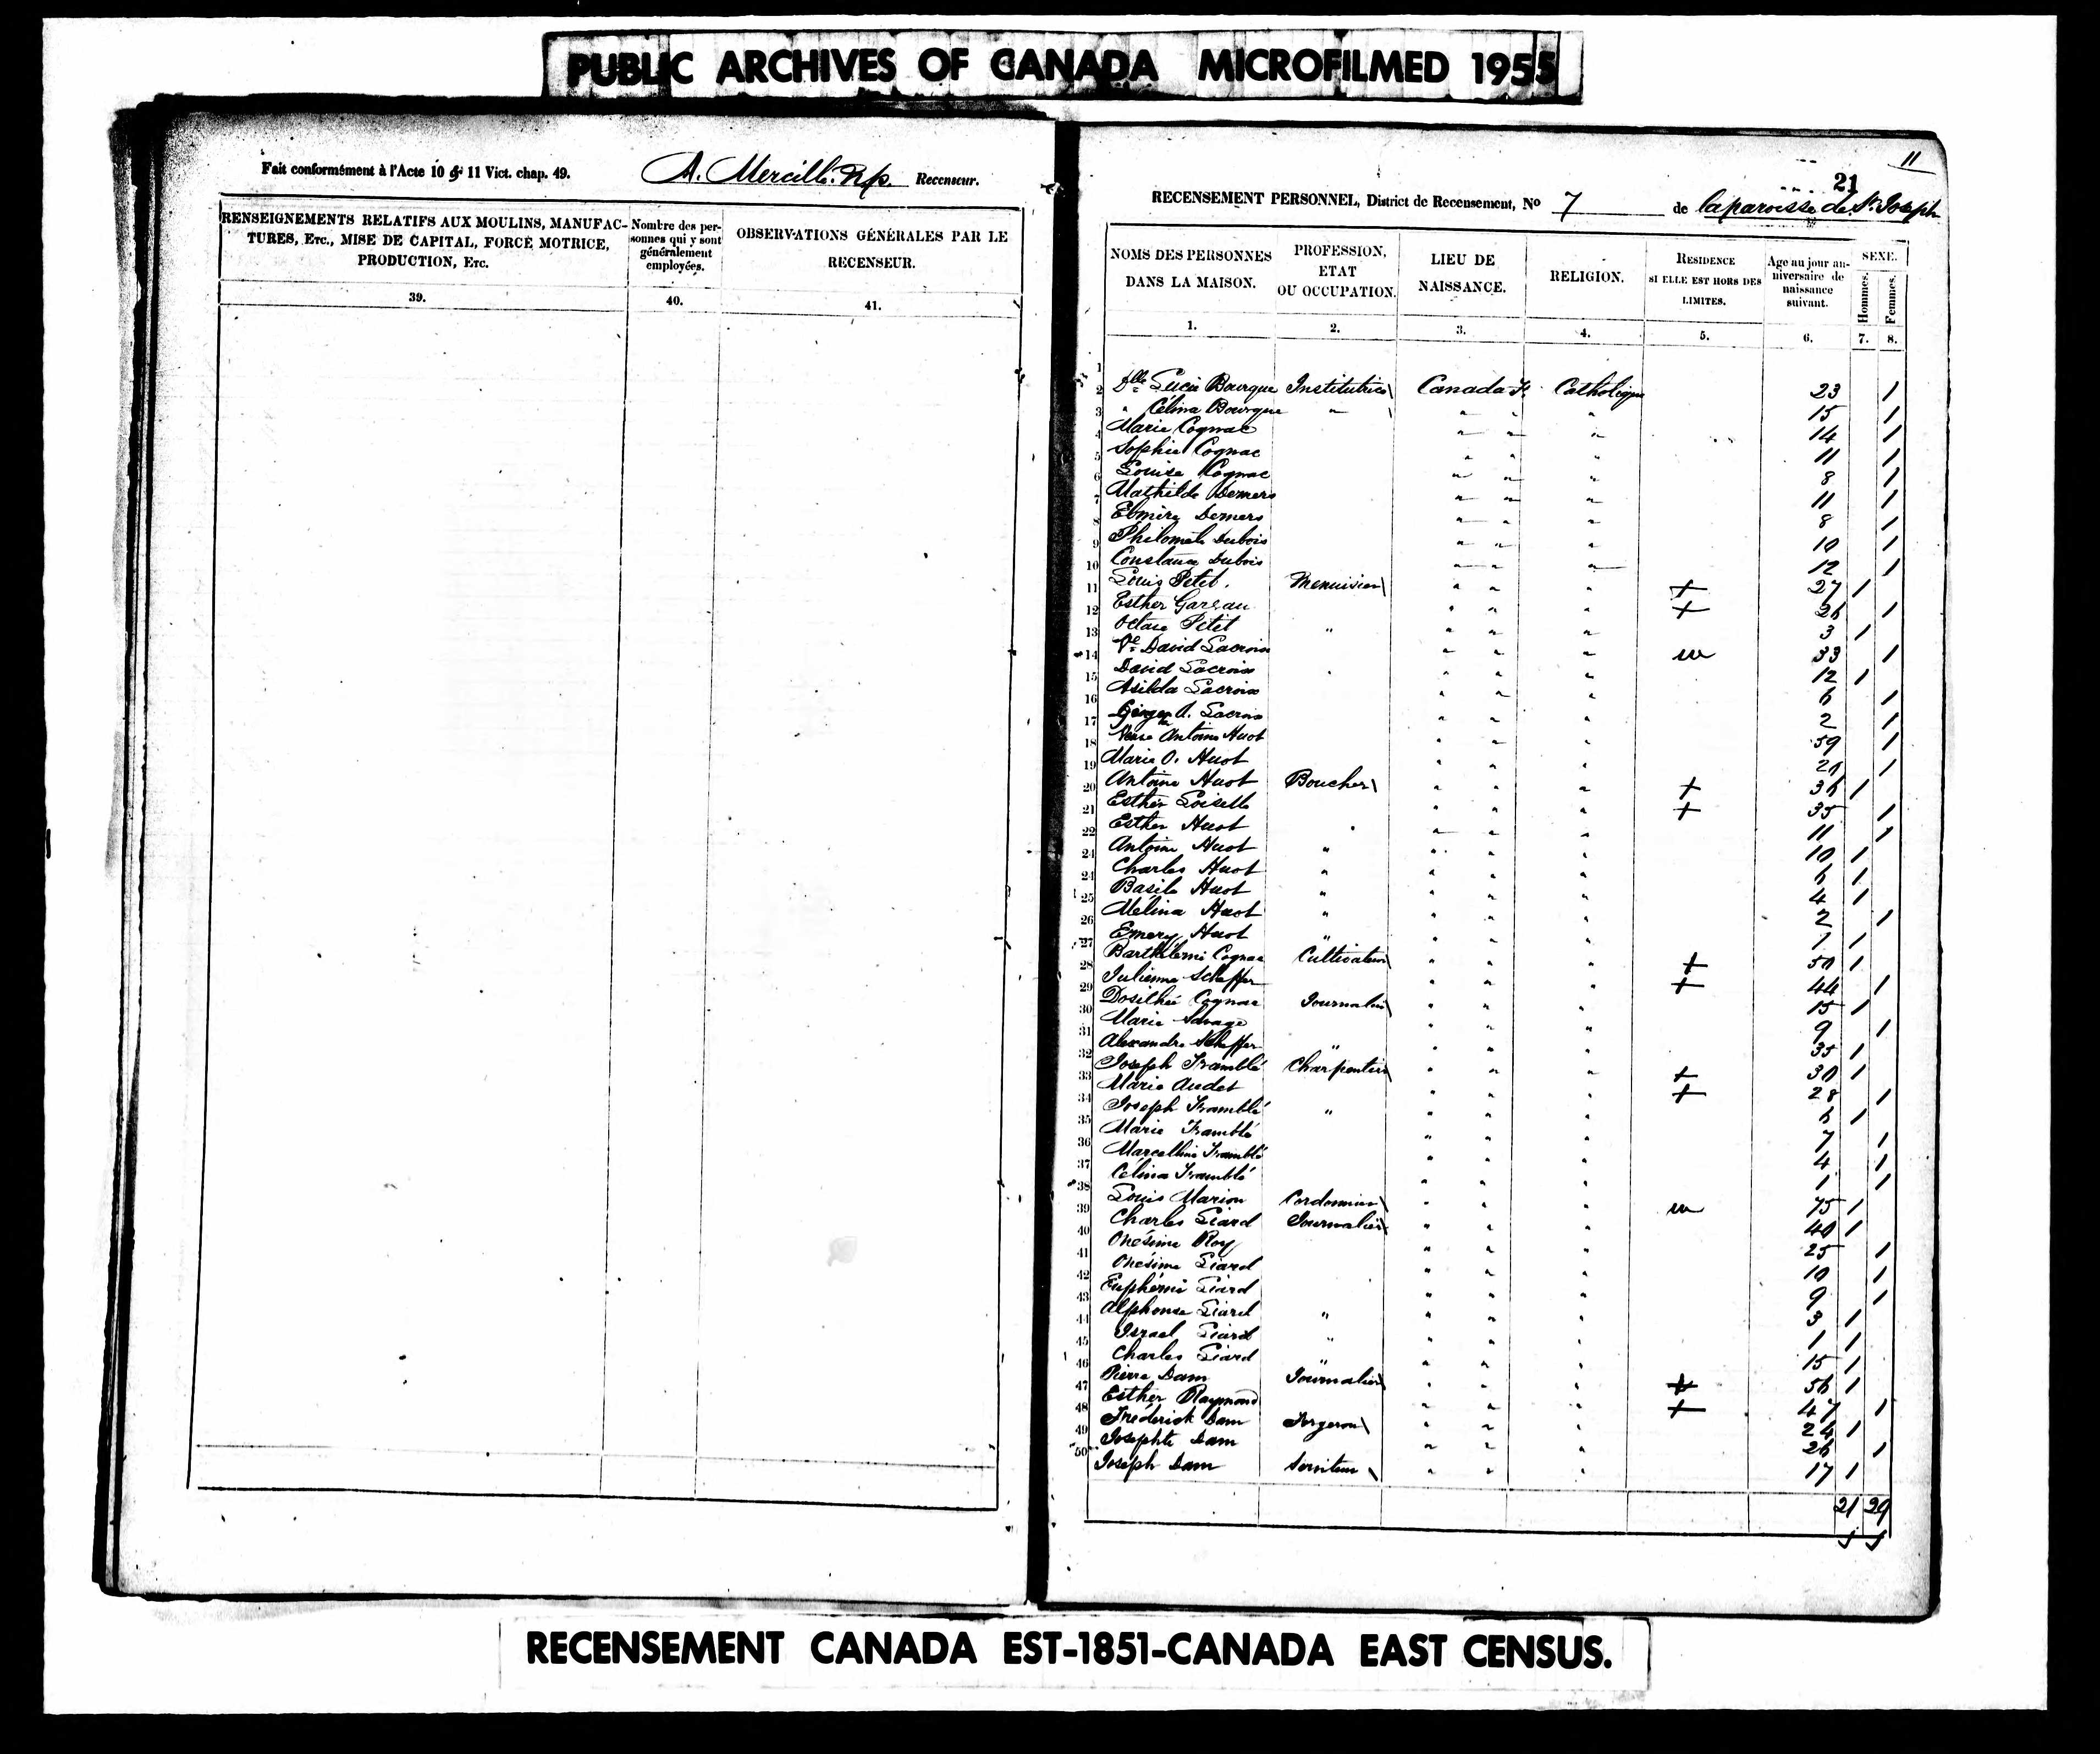 PUBLIC ARCHIVES OF CANADA MICROFILMED 1955
Fait conformément à l'Acte 10 & 11 Vict. chap. 49. A. Mercille. Recenseur.
RENSEIGNEMENTS RELATIFS AUX MOULINS, MANUFAC-
TURES, Etc., MISE DE CAPITAL, FORCE MOTRICE,
PRODUCTION, Etc.
Nombre des per-
sonnes qui y sont
généralement
employées.
OBSERVATIONS GÉNÉRALES PAR LE
RECENSEUR.
39. 40. 41.
11
21
RECENSEMENT PERSONNEL, District de Recensement, No 7 de la paroisse de St. Joseph
NOMS DES PERSONNES
DANS LA MAISON.
PROFESSION,
ETAT
OU OCCUPATION.
LIEU DE
NAISSANCE.
RELIGION.
RESIDENCE
SI ELLE EST HORS DES
LIMITES.
Age au jour an-
niversaire de
naissance
suivant.
SEXE.
Hommes.
Femmes.
1. 2. 3. 4. 5. 6. 7. 8.
1
2 Dlle Lucie Bourque Institutrice Canada F. Catholique 23 1
3 " Célina Bourque " " " " 15 1
4 Marie Cognac " " " 14 1
5 Sophie Cognac " " " 11 1
6 Louise Cognac " " " 8 1
7 Mathilde Demers " " " 11 1
8 Elmire Demers " " " 8 1
9 Philomèle Dubois " " " 10 1
10 Constance Dubois " " " 12 1
11 Louis Petit Menuisier " " " + 27 1
12 Esther Gareau " " " + 26 1
13 Octave Petit " " " " 3 1
14 Ve David Lacroix " " " 33 1
15 David Lacroix " " " " 12 1
16 Asilda Lacroix " " " 6 1
17 A. Lacroix " " " 2 1
18 Veuve Antoine Huot " " " 59 1
19 Marie O. Huot " " " 20 1
20 Antoine Huot Boucher " " " + 36 1
21 Esther Loiselle " " " + 35 1
22 Esther Huot " " " 11 1
24 Antoine Huot " " " " 10 1
24 Charles Huot " " " " 6 1
25 Basile Huot " " " " 4 1
26 Mélina Huot " " " " 2 1
27 Emery Huot " " " " 1 1
28 Barthélemi Cognac Cultivateur " " " + 50 1
29 Julienne Scheffer " " " + 44 1
30 Dosithée Cognac Journalier " " " 15 1
31 Marie Savage " " " 9 1
32 Alexandre Scheffer " " " " 35 1
33 Joseph Tramblé Charpentier " " " + 30 1
34 Marie Audet " " " + 28 1
35 Joseph Tramblé " " " " 6 1
36 Marie Tramblé " " " 7 1
37 Marcelline Tramblé " " " 4 1
38 Célina Tramblé " " " 1 1
39 Louis Marion Cordonnier " " " 75 1
40 Charles Giard Journalier " " " 40 1
41 Onésime Roy " " " 25 1
42 Onésime Giard " " " 10 1
43 Euphémie Giard " " " 9 1
44 Alphonse Giard " " " " 3 1
45 Israel Giard " " " " 1 1
46 Charles Giard " " " " 15 1
47 Pierre Dam Journalier " " " + 56 1
48 Esther Raymond " " " + 47 1
49 Fréderick Dam Forgeron " " " 24 1
50 Josephte Dam " " " 26 1
Joseph Dam Serviteur " " " 17 1
21 29
RECENSEMENT CANADA EST-1851-CANADA EAST CENSUS.